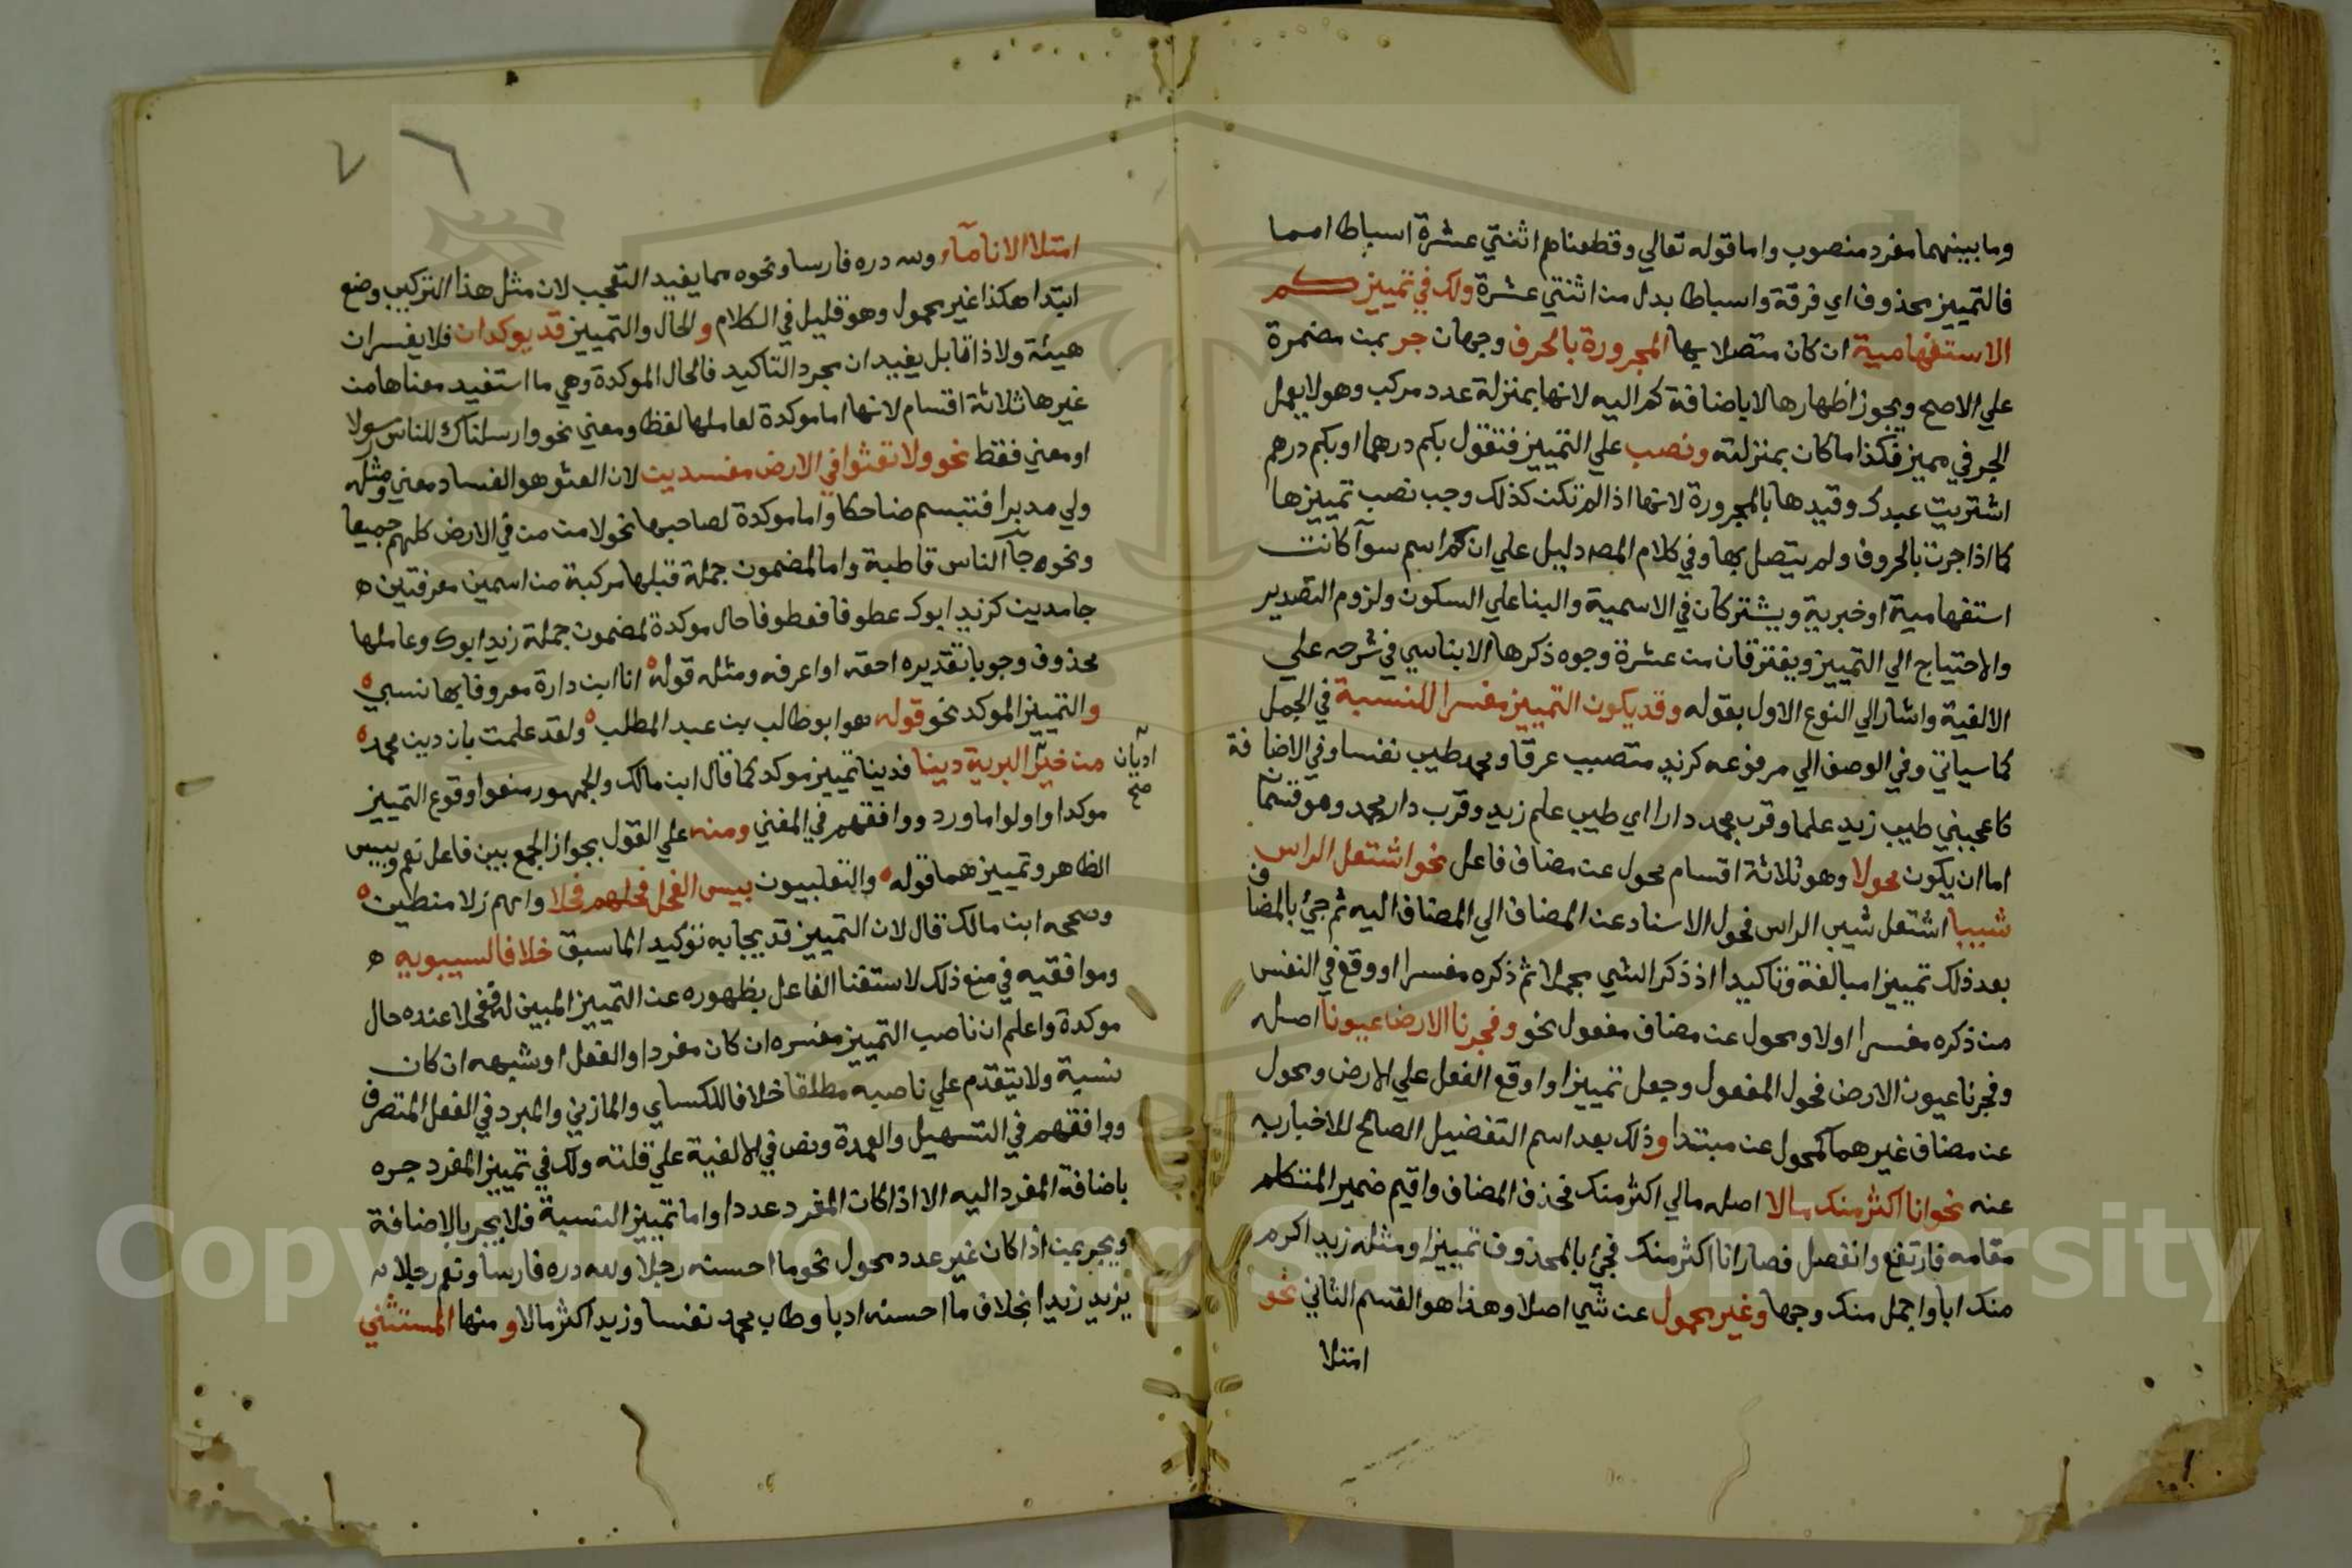 وما بينهما مفرد منصوب واما قوله تعالي وقطعناهم اثنتي عشرة اسباطا امما
فالتمييز محذوف اي فرقة واسباطا بدل من اثنتي عشرة ولك في تمييز كم
الاستفهامية ان كان متصلا بها المجرورة بالحرف وجهان جر بمن مضمرة
علي الاصح ويجوز اظهارها لا باضافة كم اليه لانها بمنزلة عدد مركب وهو لا يعمل
الجر في مميزه فكذا ما كان بمنزلته ونصب علي التمييز فتقول بكم درهما او بكم درهم
اشتريت عبدك وقيدها بالمجرورة لانها اذا لم تكن كذلك وجب نصب تمييزها
كما اذا جرت بالحروف ولم يتصل بها وفي كلام المص دليل علي ان كم اسم سوآ كانت
استفهامية او خبرية ويشتركان في الاسمية والبنا علي السكون ولزوم التصدير
والاحتياج الي التمييز ويفترقان من عشرة وجوه ذكرها الابناسي في شرحه علي
الالفية واشار الي النوع الاول بقوله وقد يكون التمييز مفسرا للنسبة في الجمل
كما سياتي وفي الوصف الي مرفوعه كزيد متصبب عرقا ومحمد طيب نفسا وفي الاضافة
كاعجبني طيب زيد علما وقرب محمد دارا اي طيب علم زيد وقرب دار محمد وهو قسما
اما ان يكون محولا وهو ثلاثة اقسام محول عن مضاف فاعل نحو اشتعل الراس
شيبا اشتعل شيب الراس فحول الاسناد عن المضاف الي المضاف اليه ثم جئ بالمضاف
بعد ذلك تمييزا مبالغة وتاكيدا اذ ذكر الشي مجملا ثم ذكره مفسرا اوقع في النفس
من ذكره مفسرا اولا ومحول عن مضاف مفعول نحو وفجرنا الارض عيونا اصله
وفجرنا عيون الارض فحول المفعول وجعل تمييزا واوقع الفعل علي الارض ومحول
عن مضاف غيرهما كمحول عن مبتدا وذلك بعد اسم التفضيل الصالح للاخبار به
عنه نحو انا اكثر منك مالا اصله مالي اكثر منك فحذف المضاف واقيم ضمير المتكلم
مقامه فارتفع وانفصل فصار انا اكثر منك فجئ بالمحذوف تمييزا ومثله زيد اكرم
منك ابا واجمل منك وجها وغير محمول عن شي اصلا وهذا هو القسم الثاني نحو
امتلا
امتلا الانا مآء ولله دره فارسا ونحوه مما يفيد التعجب لان مثل هذا التركيب وضع
ابتدا هكذا غير محمول وهو قليل في الكلام والحال والتمييز قد يوكدان فلا يفسران
هيئة ولا ذاتا بل يفيدان مجرد التاكيد فالحال الموكدة وهي ما استفيد معناها من
غيرها ثلاثة اقسام لانها اما موكدة لعاملها لفظا ومعني نحو وارسلناك للناس رسولا
او معني فقط نحو ولا تعثوا في الارض مفسدين لان العثو هو الفساد معني ومثله
ولي مدبرا فتبسم ضاحكا واما موكدة لصاحبها نحو لامن من في الارض كلهم جميعا
ونحوه جآ الناس قاطبة واما لمضمون جملة قبلها مركبة من اسمين معرفتين ه
جامدين كزيد ابوك عطوفا فعطوفا حال موكدة لمضمون جملة زيد ابوك وعاملها
محذوف وجوبا تقديره احقه او اعرفه ومثله قوله انا ابن دارة معروفا بها نسبي
والتمييز الموكد نحو قوله هو ابو طالب بن عبد المطلب ولقد علمت بان دين محمد
اديان
صح
من خير البرية دينا فدينا تمييز موكد كما قال ابن مالك والجمهور منعوا وقوع التمييز
موكدا واولوا ما ورد ووافقهم في المغني ومنه علي القول بجواز الجمع بين فاعل نعم وبيس
الظاهر وتمييزهما قوله والتغلبيون بيس الفحل فحلهم فحلا وامهم زلا منطيق
وصححه ابن مالك قال لان التمييز قد يجا به توكيدا لما سبق خلافا لسيبويه ه
وموافقيه في منع ذلك لاستغنا الفاعل بظهوره عن التمييز المبين له ففحلا عنده حال
موكدة واعلم ان ناصب التمييز مفسره ان كان مفردا والفعل او شبهه ان كان
نسبة ولا يتقدم علي ناصبه مطلقا خلافا للكساي والمازني والمبرد في الفعل المتصرف
ووافقهم في التسهيل والعمدة ونص في الالفية علي قلته ولك في تمييز المفرد جره
باضافة المفرد اليه الا اذا كان المفرد عددا واما تمييز النسبة فلا يجر بالاضافة
ويجر بمن اذا كان غير عدد محول نحو ما احسنه رجلا ولله دره فارسا ونعم رجلا
يزيد زيدا بخلاف ما احسنه ادبا وطاب محمد نفسا وزيد اكثر مالا ومنها المستثني
Copyright © King Saud University